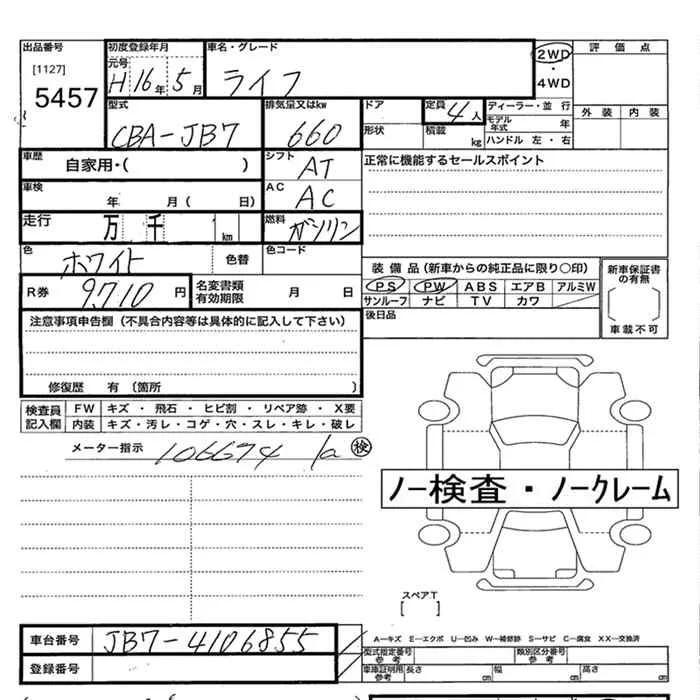 出品番号 初度登録年月 車名・グレード 2WD・4WD 評価点
[1127] 元号 H16年5月 ライフ
5457
型式 排気量又はkw ドア 定員 4人 ディーラー・並行 外装 内装
CBA-JB7 660 形状 積載 kg モデル年式 年
ハンドル 左・右
車歴 自家用・( ) シフト AT 正常に機能するセールスポイント
車検 年 月( 日) AC AC
走行 万 千 km 燃料 ガソリン
色 ホワイト 色替 色コード
装備品(新車からの純正品に限り○印) 新車保証書の有無
R券 9,710円 名変書類有効期限 月 日 PS PW ABS エアB アルミW
サンルーフ ナビ TV カワ [ ]
注意事項申告欄(不具合内容等は具体的に記入して下さい) 後日品 車載不可
修復歴 有(箇所 )
検査員記入欄 FW キズ・飛石・ヒビ割・リペア跡・X要
内装 キズ・汚レ・コゲ・穴・スレ・キレ・破レ
メーター指示 106674 検
ノー検査・ノークレーム
スペアT
[ ]
車台番号 JB7-4106855
A-キズ E-エクボ U-凹み W-補修跡 S-サビ C-腐食 XX-交換済
登録番号 型式指定番号 参考 類別区分番号 参考
車庫証明用 参考 長さ cm 幅 cm 高さ cm